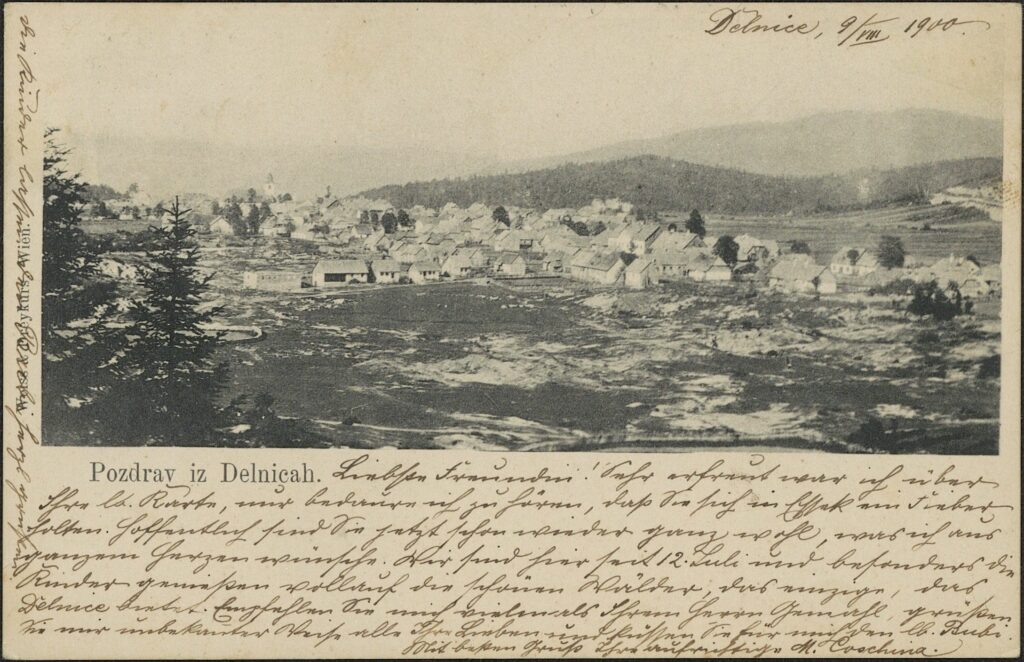 Delnice, 9/VIII 1900.
Pozdrav iz Delnicah. Liebste Freundin! Sehr erfreut war ich über
Ihre lb. Karte, nur bedaure ich zu hören, daß Sie sich in Essek ein Fieber
holten. Hoffentlich sind Sie jetzt schon wieder ganz wohl, was ich aus
ganzem Herzen wünsche. Wir sind hier seit 12. Juli und besonders die
Kinder genießen vollauf die schönen Wälder, das einzige, das
Delnice bietet. Empfehlen Sie mich vielmals Ihrem Herrn Gemahl, grüßen
Sie mir unbekanter Weise alle Ihre Lieben und küssen Sie für mich den lb. Bubi.
Mit besten Gruß Ihre aufrichtige M. Coschina.
Kinder lassen
Wien.